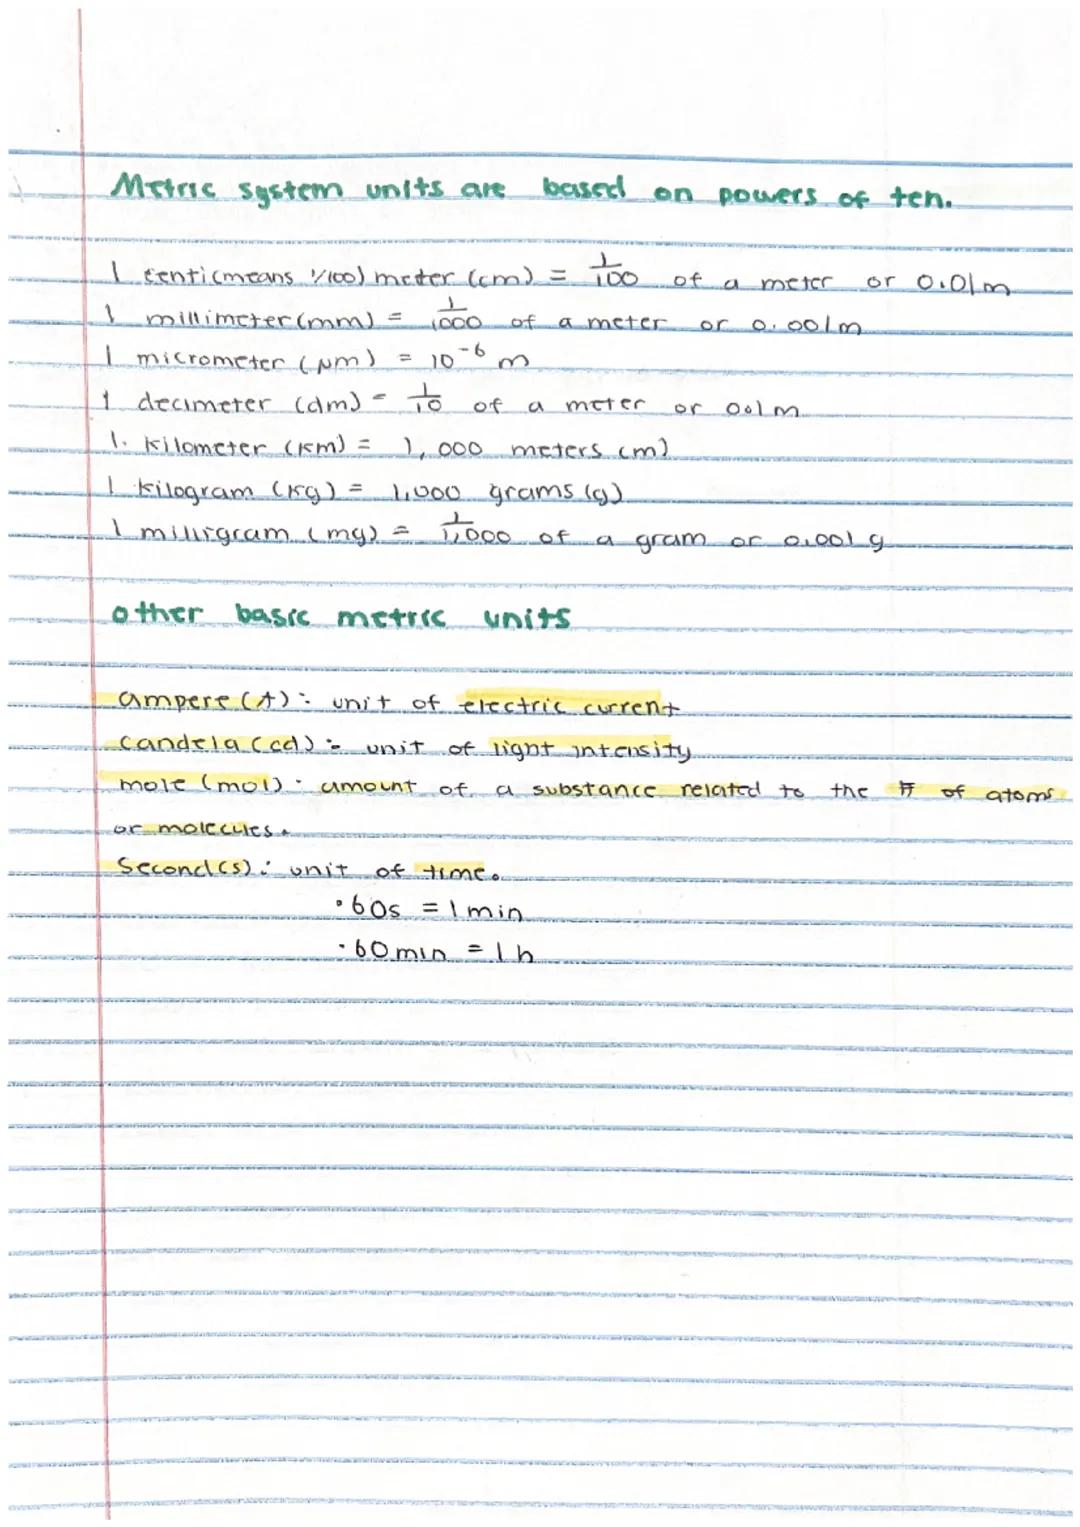 Metric system units are based on powers of ten.
1 centi(means 1/100) meter (cm) = 1/100 of a meter or 0.01m
1 millimeter (mm) = 1/1000 of a meter or 0.001m
1 micrometer (μm) = 10⁻⁶ m
1 decimeter (dm) = 1/10 of a meter or 0.1m
1. Kilometer (Km) = 1,000 meters (m)
1 Kilogram (Kg) = 1,000 grams (g)
1 milligram (mg) = 1/1,000 of a gram or 0.001 g
other basic metric units
ampere (A): unit of electric current
Candela (cd): unit of light intensity
mole (mol): amount of a substance related to the # of atoms
or molecules.
Second (s): unit of time.
•60s = 1 min
•60 min = 1 h